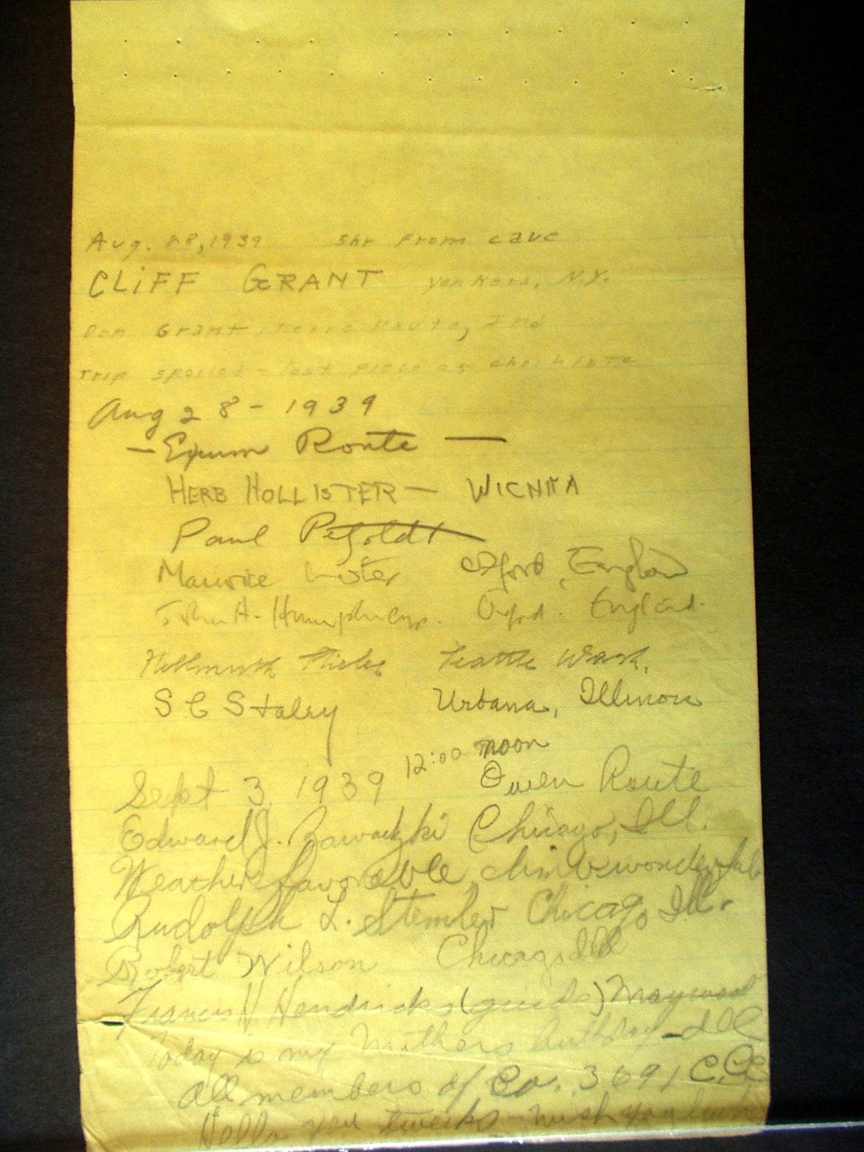 Aug. 28, 1939 5hr From cave
CLIFF GRANT Yonkers, N.Y.
Don Grant, Terre Haute, Ind
Trip spoiled - lost piece of chocolate
Aug 28 - 1939
- Exum Route -
HERB HOLLISTER - WICHITA
Paul Petzoldt
Maurice Oxford, England
John H. Humphreys. Oxford. England.
Hellmuth Seattle Wash.
S C Staley Urbana, Illinois
12:00 noon
Sept 3, 1939 Owen Route
Edward J. Zawadzki Chicago, Ill.
Weather favorable climb wonderful
Rudolph L. Stemler Chicago Ill.
Robert Wilson Chicago Ill
Francis H Hendricks (guide) Maywood
Today is my Mothers birthday - Ill
All members of Co. 3691 C.C.C
Hello you - wish you luck